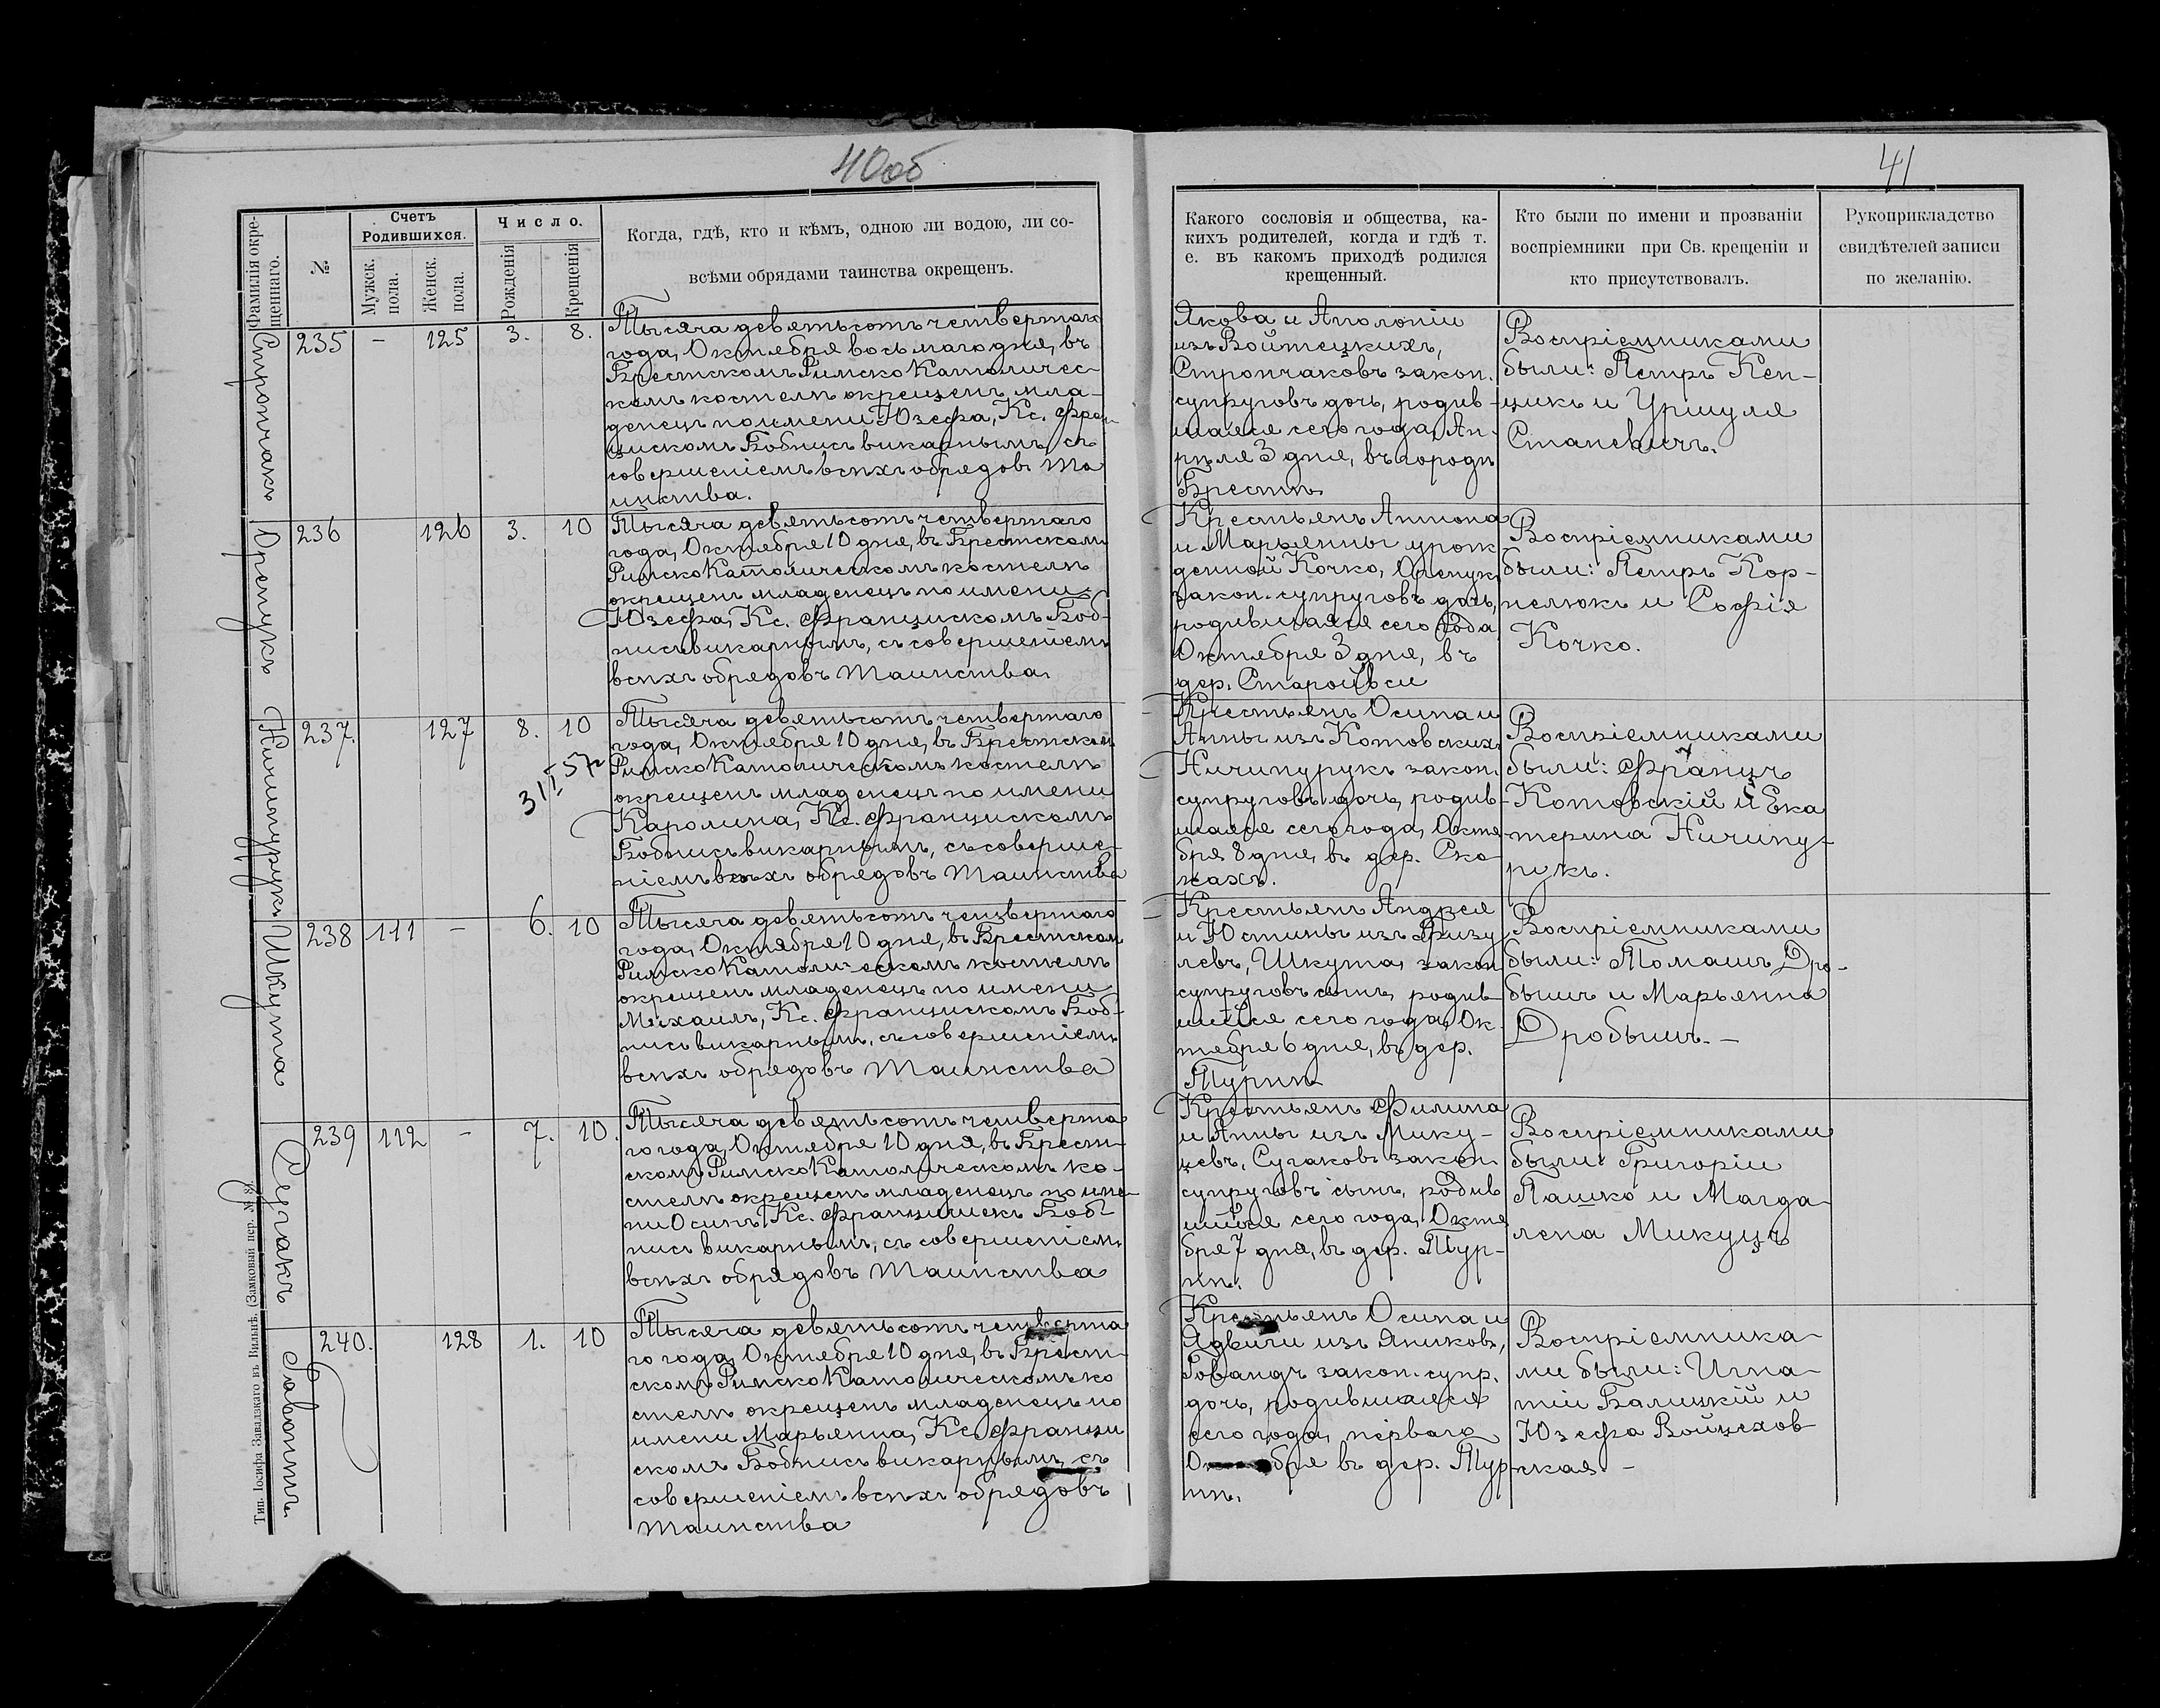 40об
41
Фамилія окре-
щеннаго.
№
Счетъ
Родившихся.
Мужск.
пола.
Женск.
пола.
Число.
Рожденія
Крещенія
Когда, гдѣ, кто и кѣмъ, одною ли водою, ли со-
всѣми обрядами таинства окрещенъ.
Какого сословія и общества, ка-
кихъ родителей, когда и гдѣ т.
е. въ какомъ приходѣ родился
крещенный.
Кто были по имени и прозваніи
воспріемники при Св. крещеніи и
кто присутствовалъ.
Рукоприкладство
свидѣтелей записи
по желанію.
Стрончакъ
235
-
125
3.
8.
Тысяча девятьсотъ четвертаго
года, Октября восьмаго дня, въ
Брестскомъ Римско Католичес-
комъ костелѣ окрещенъ мла-
денецъ по имени Юзефа, Кс. Фран
цискомъ Бобнисъ викарнымъ, съ
совершеніемъ всѣхъ обрядовъ Та
инства.
Якова и Аполоніи
изъ Войтецкихъ,
Стропчаковъ закон.
супруговъ дочь, родив-
шаяся сего года, Ап-
рѣля 3 дня, въ городѣ
Брестѣ
Воспріемниками
были: Петръ Кен-
цикъ и Уршуля
Станевичъ.
Оренукъ
236
126
3.
10
Тысяча девятьсотъ четвертаго
года, Октября 10 дня, въ Брестскомъ
Римско Католическомъ костелѣ
окрещенъ младенецъ по имени
Юзефа, Кс. Францискомъ Боб-
нисъ викарнымъ, съ совершеніемъ
всѣхъ обрядовъ Таинства.
Крестьянъ Антона
и Марьянны урож
денной Кочко, Оренукъ
закон. супруговъ дочь,
родившаяся сего года
Октября 3 дня, въ
дер. Старойвси
Воспріемниками
были: Петръ Кор-
нелюкъ и Софія
Кочко.
Ничипурукъ
237.
127
8.
10
31/I 57
Тысяча девятьсотъ четвертаго
года, Октября 10 дня, въ Брестскомъ
Римско Католическомъ костелѣ
окрещенъ младенецъ по имени
Каролина, Кс. Францискомъ
Бобнисъ викарнымъ, съ соверше-
ніемъ всѣхъ обрядовъ Таинства
Крестьянъ Осипа и
Анны изъ Котовскихъ
Ничипурукъ закон.
супруговъ дочь, родив-
шаяся сего года, Октя
бря 8 дня, въ дер. Ско-
кахъ.
Воспріемниками
были: Францъ
Котовскій и Ека
терина Ничипу-
рукъ.
Шкута
238
111
-
6.
10
Тысяча девятьсотъ четвертаго
года, Октября 10 дня, въ Брестскомъ
Римско Католическомъ костелѣ
окрещенъ младенецъ по имени
Михаилъ, Кс. Францискомъ Боб-
нисъ викарнымъ, съ совершеніемъ
всѣхъ обрядовъ Таинства
Крестьянъ Андрея
и Юстины изъ Физу
левъ, Шкута, закон
супруговъ сынъ, родив-
шійся сего года, Ок-
тября 6 дня, въ дер.
Турнѣ
Воспріемниками
были: Томашъ Дро-
бышъ и Марьянна
Дробышъ. -
Сучакъ
239
112
-
7.
10.
Тысяча девятьсотъ четверта
го года, Октября 10 дня, въ Брест-
скомъ Римско Католическомъ ко-
стелѣ окрещенъ младенецъ по име-
ни Осипъ, Кс. Францишекъ Боб-
нисъ викарнымъ, съ совершеніемъ
всѣхъ обрядовъ Таинства
Крестьянъ Филипа
и Анны изъ Мику-
цевъ, Сучаковъ закон.
супруговъ сынъ, родив
шійся сего года, Октя
бря 7 дня, въ дер. Тур-
нѣ.
Воспріемниками
были: Григорій
Пашко и Магда-
лена Микуцъ
240.
128
1.
10
Тысяча девятьсотъ четверта
го года, Октября 10 дня, въ Брест-
скомъ Римско Католическомъ ко
стелѣ окрещенъ младенецъ по
имени Марьянна, Кс. Францы
скомъ Бобнисъ викарнымъ, съ
совершеніемъ всѣхъ обрядовъ
Таинства
Крестьянъ Осипа и
Ядвиги изъ Яниковъ,
закон. супр.
дочь, родившаяся
сего года, перваго
Октября въ дер. Тур
нѣ.
Воспріемника-
ми были: Игна-
тій Балицкій и
Юзефа Войцехов
ская. -
Тип. Іосифа Завадзкаго въ Вильнѣ. (Замковый пер. № 8).